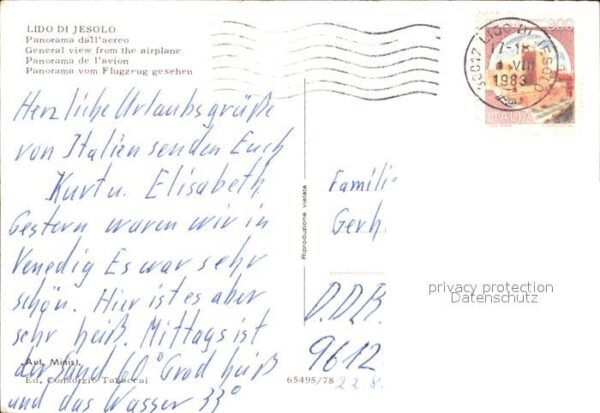 LIDO DI JESOLO
Panorama dall'aereo
General view from the airplane
Panorama de l'avion
Panorama vom Flugzeug gesehen
300
30017 LIDO DI JESOLO
17-18
VIII
1983
ITALIA
Herzliche Urlaubsgrüße
von Italien senden Euch
Kurt u. Elisabeth
Gestern waren wir in
Venedig Es war sehr
schön. Hier ist es aber
sehr heiß. Mittags ist
der Sand 60° Grad heiß
und das Wasser 33°
Aut. Minist.
Ed. Consorzio Tabaccai
65495/78
Riproduzione vietata
Famili
Gerh.
D.D.R.
9612
22.8.
privacy protection
Datenschutz